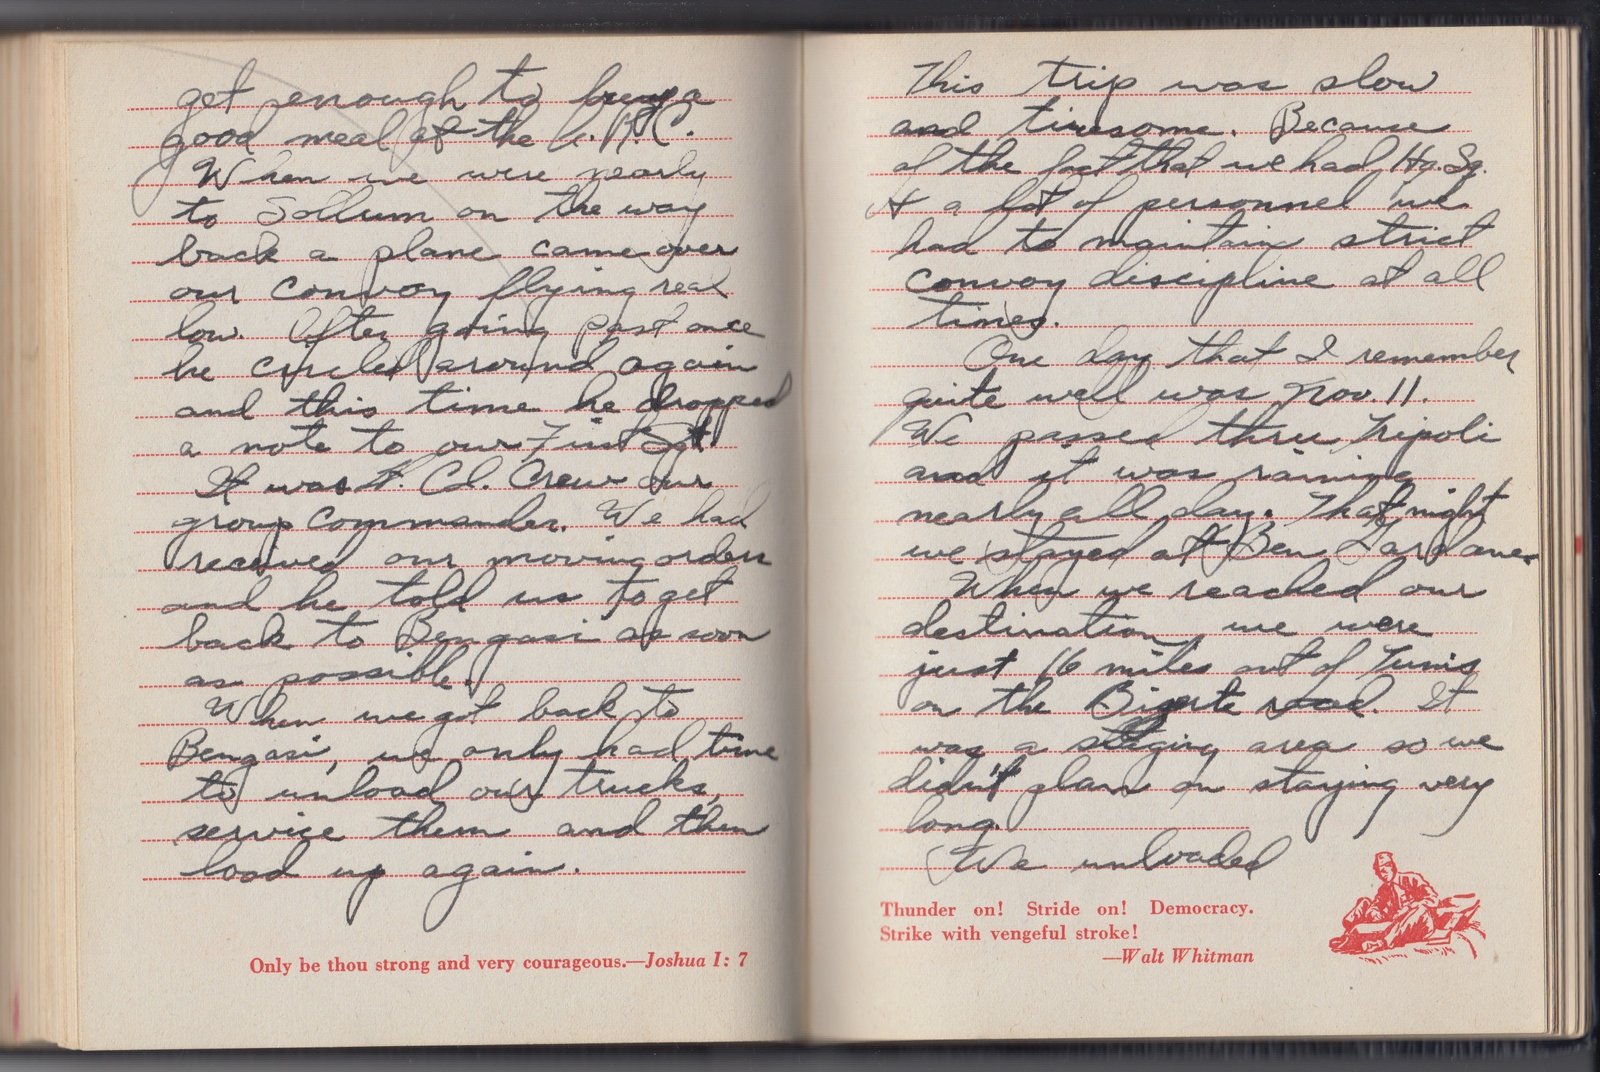 get enough to buy a
good meal at the A.R.C.
When we were nearly
to Sollum on the way
back a plane came over
our convoy flying real
low. After going past once
he circled around again
and this time he dropped
a note to our First Sgt
It was Lt. Col. Crew our
group commander. We had
received our moving orders
and he told us to get
back to Bengasi as soon
as possible.
When we got back to
Bengasi, we only had time
to unload our trucks,
service them and then
load up again.
Only be thou strong and very courageous.—Joshua I: 7
This trip was slow
and tiresome. Because
of the fact that we had Hq. Sq.
& a lot of personnel we
had to maintain strict
convoy discipline at all
times.
One day that I remember
quite well was Nov. 11.
We passed thru Tripoli
and it was raining
nearly all day. That night
we stayed at Ben Gardane.
When we reached our
destination we were
just 16 miles out of Tunis
on the Bizerte road. It
was a staging area so we
didn't plan on staying very
long.
We unloaded
Thunder on! Stride on! Democracy.
Strike with vengeful stroke!
—Walt Whitman